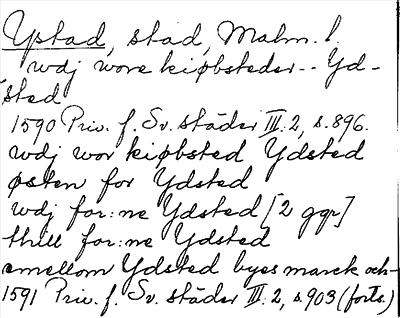 Ystad, stad, Malm. l.
wdj wore kiøbsteder -- Yd-
sted
1590 Priv. f. Sv. städer III: 2, s. 896.
wdj wor kiøbsted Ydsted
østen for Ydsted
wdj for:ne Ydsted [2 ggr]
thill for:ne Ydsted
emellom Ydsted byes marck och-
1591 Priv. f. Sv. städer III: 2, s. 903 (forts.)